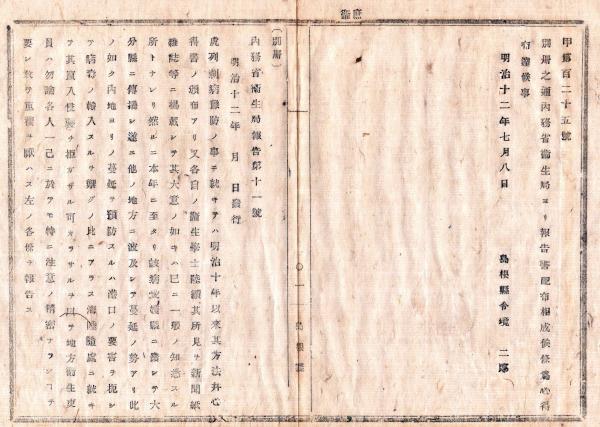 庶衞
甲第百二十五號
別册之通内務省衞生局ヨリ報告書配布相成候條爲心得
布達候事
明治十二年七月八日
島根縣令境 二郎
〇一 島根縣
(別册)
内務省衞生局報告第十一號
明治十二年 月 日發行
虎列剌病豫防ノ事ニ就キテハ明治十年以來其方法并心
得書ノ頒布アリ又各自ノ衞生學士陸續其所見ヲ新聞紙
雜誌等ニ揭載シテ其大意ノ如キハ已ニ一般ノ知悉スル
所トナレリ然ルニ本年ニ至タリ該病愛媛縣ニ發シテ大
分縣ニ傳播シ遂ニ他ノ地方ニ波及シテ蔓延ノ勢アリ此
ノ如ク内地ヨリノ蔓延ヲ預防スルハ港口ノ要害ヲ扼シ
テ病毒ノ輸入スルヲ禦グノ比ニアラス海陸隨處ニ就キ
テ其竄入侵襲ヲ拒ガザル可カラサルヲ以テ地方衞生吏
員ハ勿論各人一己ニ於テモ特ニ注意ノ精密ナランコヲ
要シ敢テ重複ヲ厭ハス左ノ各條ヲ報告ス